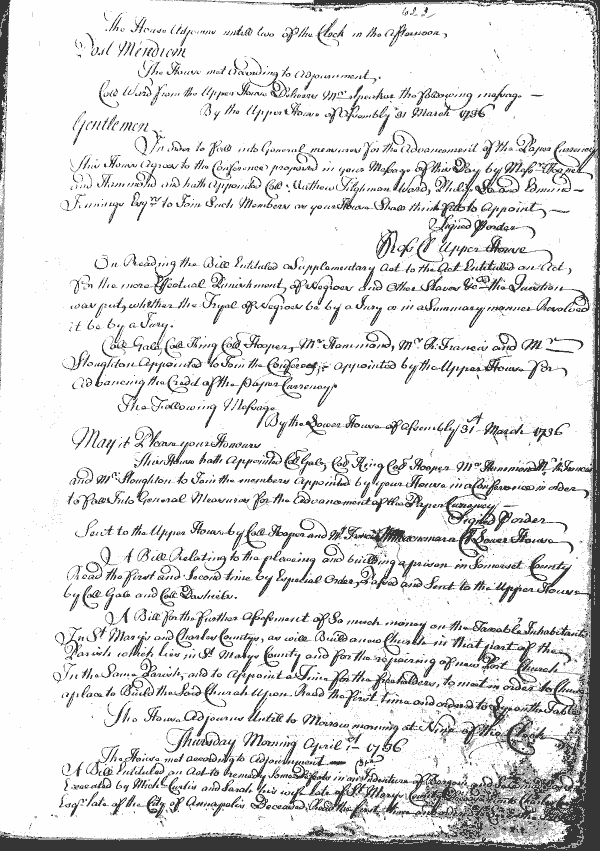 623
The House Adjourns untill two of the Clock in the Afternoon,
Post Meridiem
The House met According to Adjournment.
Coll Ward from the Upper House Delivers Mr Speaker the following message
By the Upper House of Assembly 31 March 1736
Gentlemen
In order to fall into General measures for the Advancement of the Paper Currency
this House Agrees to the Conference proposed in your Message of this Day by Messrs Hooper
and Hammond and hath Appointed Coll. Mathew Tilghman Ward, Philip Lee and Edmund
Jennings Esqrs to Join Such Members as your House Shall think fitt to Appoint
Signed P order
Ross Cl Upper House
On Reading the Bill Entituled a Supplementary Act to the Act Entituled an Act,
for the more Effectual Punishment, of Negroes and Other Slaves &c the Question
was put, whether the Tryal of Negroes be by a Jury or in a Summary manner Resolved
it be by a Jury.
Coll Gale, Coll King Coll Hooper, Mr Hammond, Mr R. Francis and Mr
Stoughton Appointed to Join the Conferees appointed by the Upper House for
Advancing the Credit of the Paper Currency.
The Following Message
By the Lower House of Assembly 31st March 1736
May it Please your Honours
This House hath Appointed Coll Gale, Coll King Coll Hooper Mr Hammond Mr R. Francis
and Mr Stoughton to Join the members Appointed by your House in a Conference in order
to fall Into General Measures for the Advancement of the Paper Currency
Signed P order
Sent to the Upper House by Coll Hooper and Mr Francis Macnemara Cl Lower House
A Bill Relating to the placeing and building a prison in Somerset County
Read the first and Second time by Especial Order, Passed and Sent to the Upper House
by Coll Gale and Coll Lashiels.
A Bill for the further Assessment of So much money on the Taxable Inhabitants
In St Marys and Charles Countys, as will Build a new Church in that part of the
Parish which lies in St Marys County and for the repairing of new Port Church
In the Same Parish, and to Appoint a Time for the freeholders, to meet in order to Chuse
a place to Build the said Church Upon. Read the first time and ordered to Lye on the Table
The House Adjourns Untill to Morrow morning at Nine of the Clock
Thursday Morning April 1st 1736
The House met according to Adjournment
A Bill Entituled an Act to remedy Some Defects in an Indenture of Bargain and Sale
Executed by Mich Curtis and Sarah his wife late of St Marys County
Esqr late of the City of Annapolis Deceased Read the first time and ordered